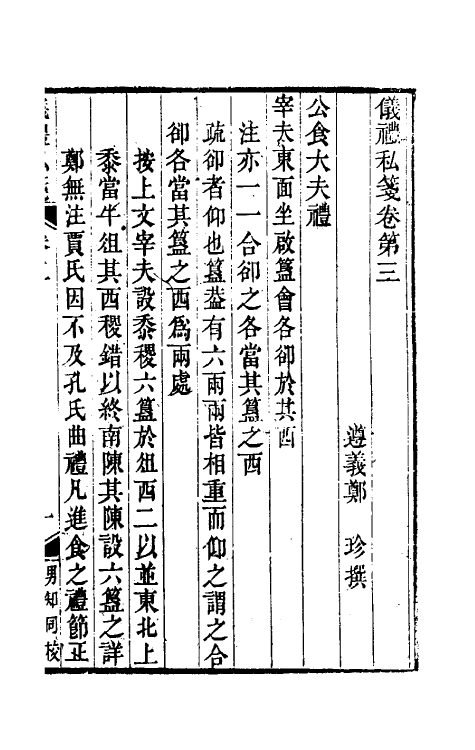 儀禮私箋卷第三
遵義鄭　珍撰
公食大夫禮
宰夫東面坐啟簋會各卻於其西
注亦一一合卻之各當其簋之西
疏卻者仰也簋葢有六兩兩皆相重而仰之謂之合
卻各當其簋之西爲兩處
按上文宰夫設黍稷六簋於俎西二以並東北上
黍當牛俎其西稷錯以終南陳其陳設六簋之詳
鄭無注賈氏因不及孔氏曲禮凡進食之禮節正
一
男知同校